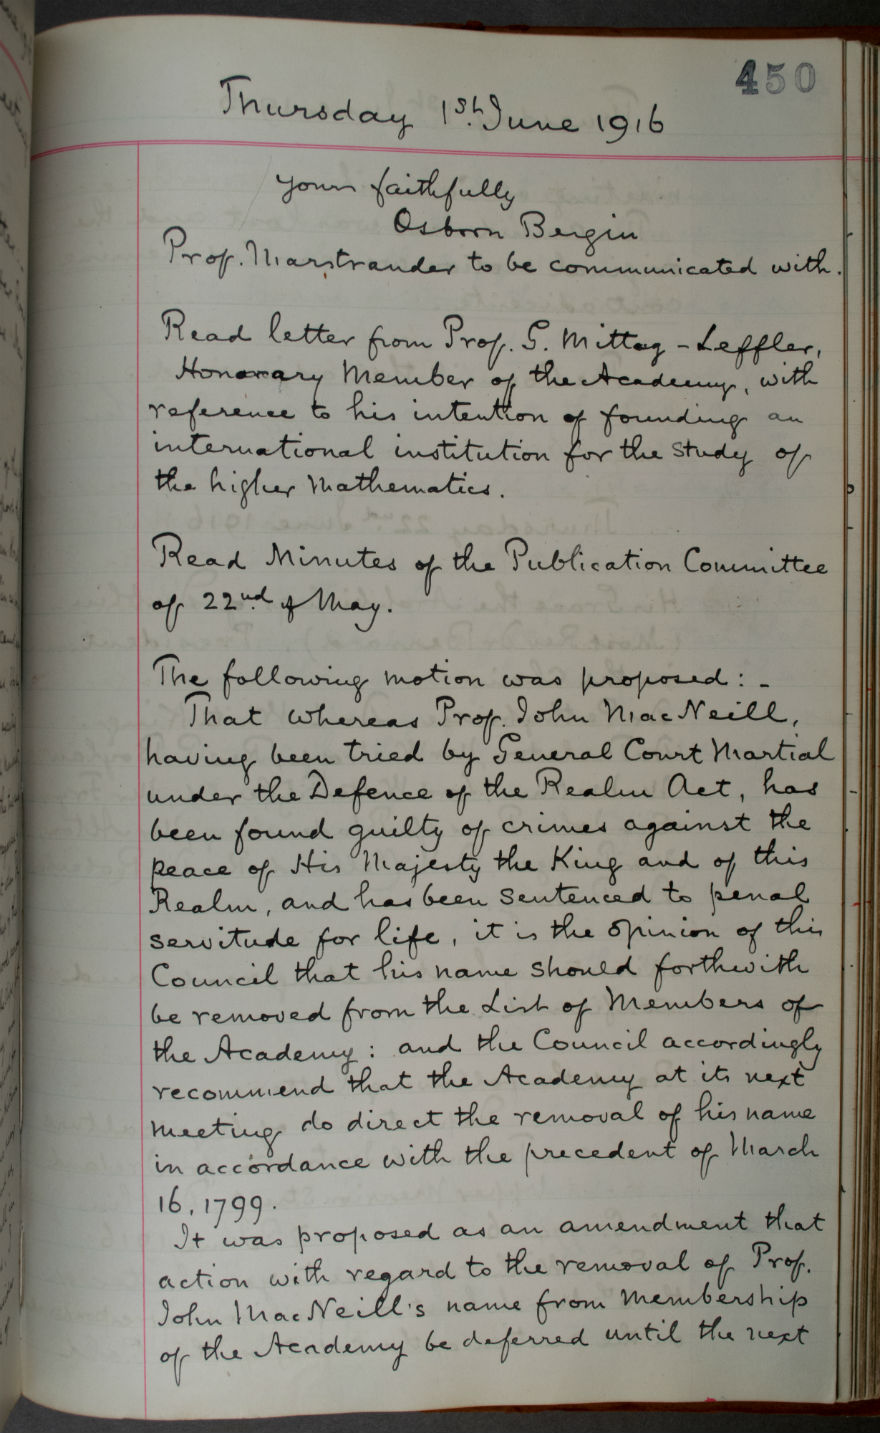 450
Thursday 1st. June 1916
yours faithfully
Osborn Bergin
Prof. Marstrander to be communicated with.
Read letter from Prof. G. Mittag-Leffler,
Honorary Member of the Academy, with
reference to his intention of founding an
international institution for the study of
the higher Mathematics.
Read Minutes of the Publication Committee
of 22nd of May.
The following motion was proposed:-
That whereas Prof. John MacNeill,
having been tried by General Court Martial
under the Defence of the Realm Act, has
been found guilty of crimes against the
peace of His Majesty the King and of this
Realm, and has been sentenced to penal
servitude for life, it is the opinion of this
Council that his name should forthwith
be removed from the List of Members of
the Academy: and the Council accordingly
recommend that the Academy at its next
meeting do direct the removal of his name
in accordance with the precedent of March
16, 1799.
It was proposed as an amendment that
action with regard to the removal of Prof.
John MacNeill's name from membership
of the Academy be deferred until the next